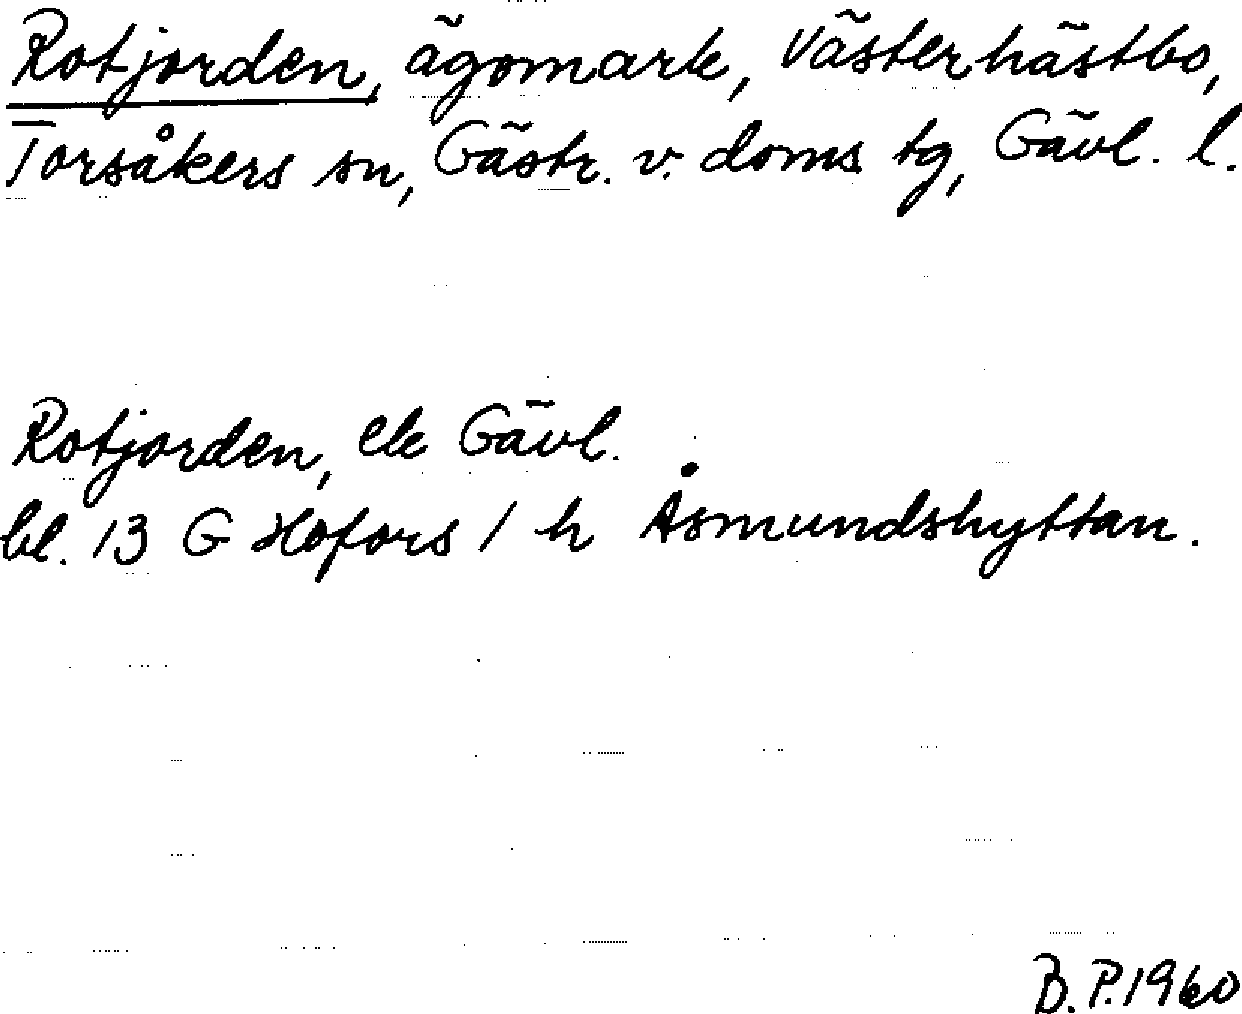 Rotjorden, ägomark, Västerhästbo,
Torsåkers sn, Gästr. v. doms tg, Gävl. l.
Rotjorden, ek Gävl.
bl. 13 G Hofors / h Åsmundshyttan.
B.P. 1960